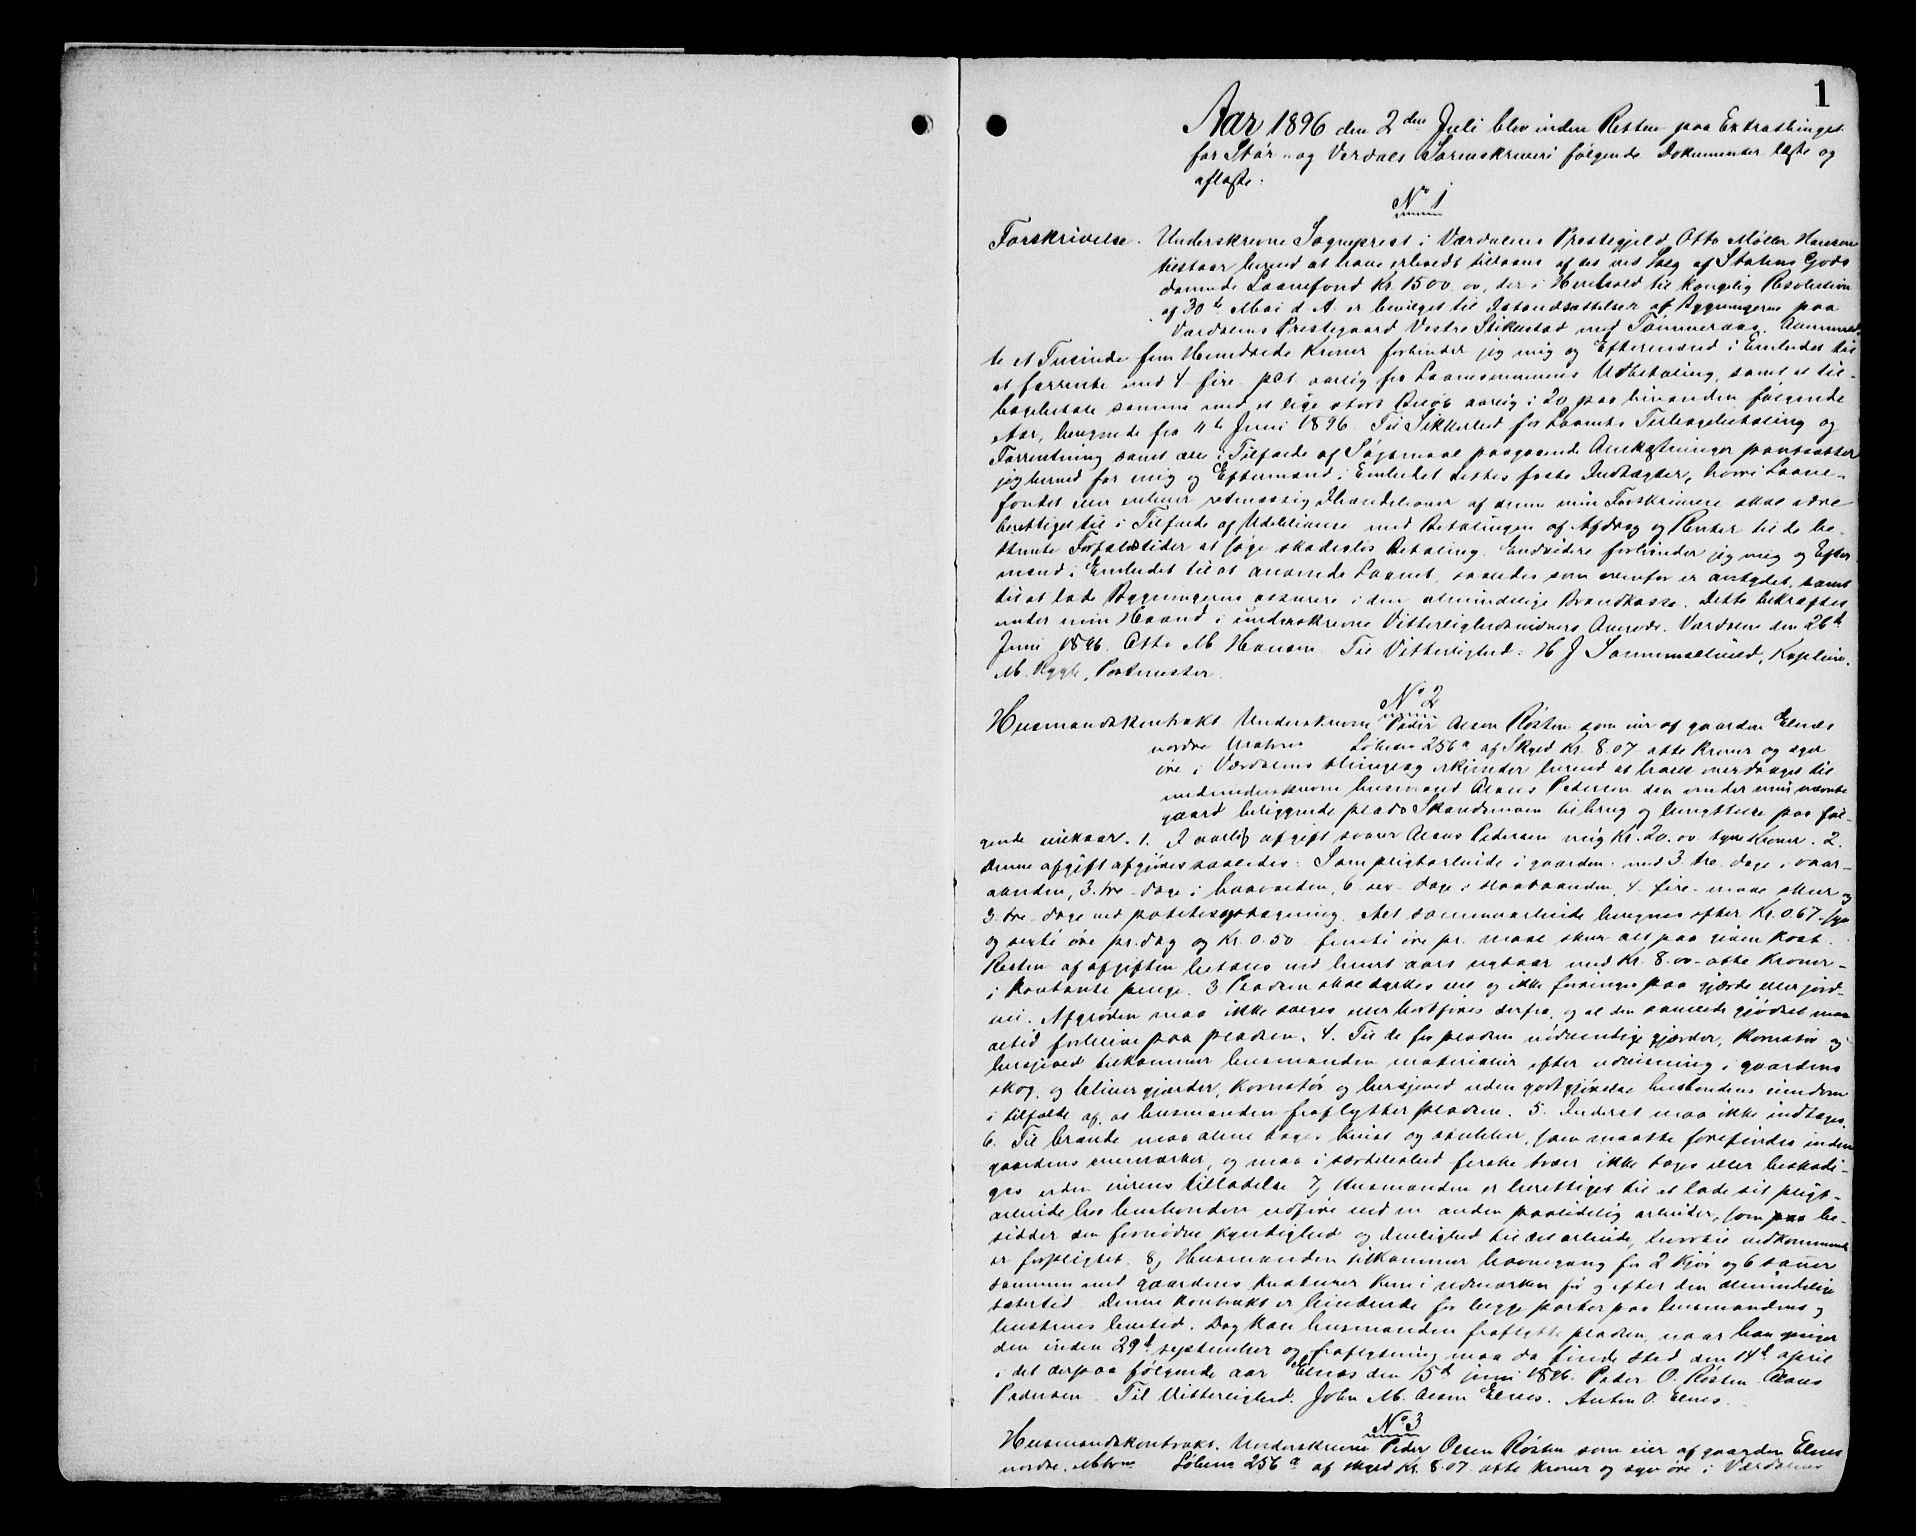 1
Aar 1896 den 2den Juli blev inden Retten paa Extrathinget
for Stør- og Verdals Sorenskriveri følgende Dokumenter læste og
aflæste:
No 1
Forskrivelse. Underskrevne Sogneprest i Værdalens Prestegjeld Otto Møller Hansen
tilstaar herved at have erholdt tillaans af det ved Salg af Statens Gods
dannede Laanefond Kr. 1500.00, der i Henhold til Kongelig Resolution
af 30te Mai d. A. er bevilget til Istandsættelser af Bygningerne paa
Værdalens Prestegaard Vestre Stiklestad med Tømmeraas. Anmeld-
te et Tusinde fem Hundrede Kroner forbinder jeg mig og Eftermænd i Embedet til
at forrente med 4 fire pCt. aarlig fra Laanesummens Udbetaling, samt at til-
bagebetale samme med et lige stort Beløb aarlig i 20 paa hinanden følgende
Aar, beregnede fra 11te Juni 1896. Til Sikkerhed for Laanets Tilbagebetaling og
Forrentning samt alle i Tilfælde af Søgsmaal paagaaende Omkostninger pantsætter
jeg herved for mig og Eftermænd i Embedet dettes faste Indtægter, hvori Laane-
fondet eller enhver retmæssig Ihændehaver af denne min Forskrivelse skal være
berettiget til i Tilfælde af Udeblivelse med Betalingen af Afdrag og Renter til de be-
stemte Forfaldstider at søge skadesløs Betaling. Endvidere forbinder jeg mig og Efter-
mænd i Embedet til at anvende Laanet, saaledes som ovenfor er antydet, samt
til at lade Bygningerne assurere i den almindelige Brandkasse. Dette bekræftes
under min Haand i underskrevne Vitterlighedsvidners Overvær. Værdalen den 26de
Juni 1896. Otto M Hansen. Til Vitterlighed: H J Kaptein.
M. Postmester.
No 2
Husmandskontrakt. Underskrevne Peder Olsen Røsten som eier af gaarden Elnæs
nordre Matren. Løbeno 256a af Skyld Kr. 8.07 otte kroner og syv
øre i Værdalens thinglag erkjender herved at have overdraget til
nedenunderskrevne husmand Olaus Pedersen den under min nævnte
gaard beliggende plads Skandsmoen til brug og benyttelse paa føl-
gende vilkaar. 1. I aarlig afgift svarer Olaus Pedersen mig Kr. 20.00 tyve Kroner. 2.
Denne afgift afgjøres saaledes: Som pligtarbeide i gaarden med 3 tre dage i vaar-
aanden, 3 tre dage i høaanden, 6 sex dage i slaataanden, 4 fire maal skur og
3 tre dage ved potetesoptagning. Alt sommerarbeide beregnes efter Kr. 0.67 syv
og sexti øre pr. dag og Kr. 0.50 femti øre pr. maal skur alt paa egen kost.
Resten af afgiften betales ved hvert aars udgaar med Kr. 8.00 otte Kroner
i kontante penge. 3 Pladsen skal dyrkes vel og ikke forringes paa gjærde eller jord-
vei. Afgrøden maa ikke sælges eller bortføres derfra, og al den samlede gjødsel maa
altid forblive paa pladsen. 4. Til de for pladsen nødvendige gjærder, kornstør og
hersjeved tilkommer husmanden materialier efter udvisning i gaardens
skog, og bliver gjærder, kornstør og hersjeved uden godtgjørelse husbondens eiendom
i tilfælde af, at husmanden fraflytter pladsen. 5. Inderst maa ikke indtages.
6. Til brænde maa alene tages kvist og stubber, som maatte forefindes inden
gaardens enemærker, og maa i særdeleshed ferske træer ikke tages eller beskadi-
ges uden eierens tilladelse. 7) Husmanden er berettiget til at lade sit pligt-
arbeide hos husbonden udføre ved en anden paalidelig arbeider, som be-
sidder den fornødne kyndighed og duelighed til det arbeide, hvortil vedkommende
er forpligtet. 8) Husmanden tilkommer havnegang for 2 kjør og 6 sauer
sammen med gaardens kreaturer kun i udmarken før og efter den almindelige
sætertid. Denne kontrakt er bindende for begge parter paa husmandens og
hustrues levetid. Dog kan husmanden fraflytte pladsen, naar han opsiger
den inden 29d september og fraflytning maa da finde sted den 14d april
i det derpaa følgende aar. Elnæs den 15d juni 1896. Peder O. Røsten. Olaus
Pedersen. Til Vitterlighed: John M. Olsen Elnes. Anton O. Elnes.
No 3
Husmandskontrakt. Underskrevne Peder Olsen Røsten som eier af gaarden Elnes
nordre. Matren Løbeno 256a af skyld Kr. 8.07 otte kroner og syv øre i Værdalens